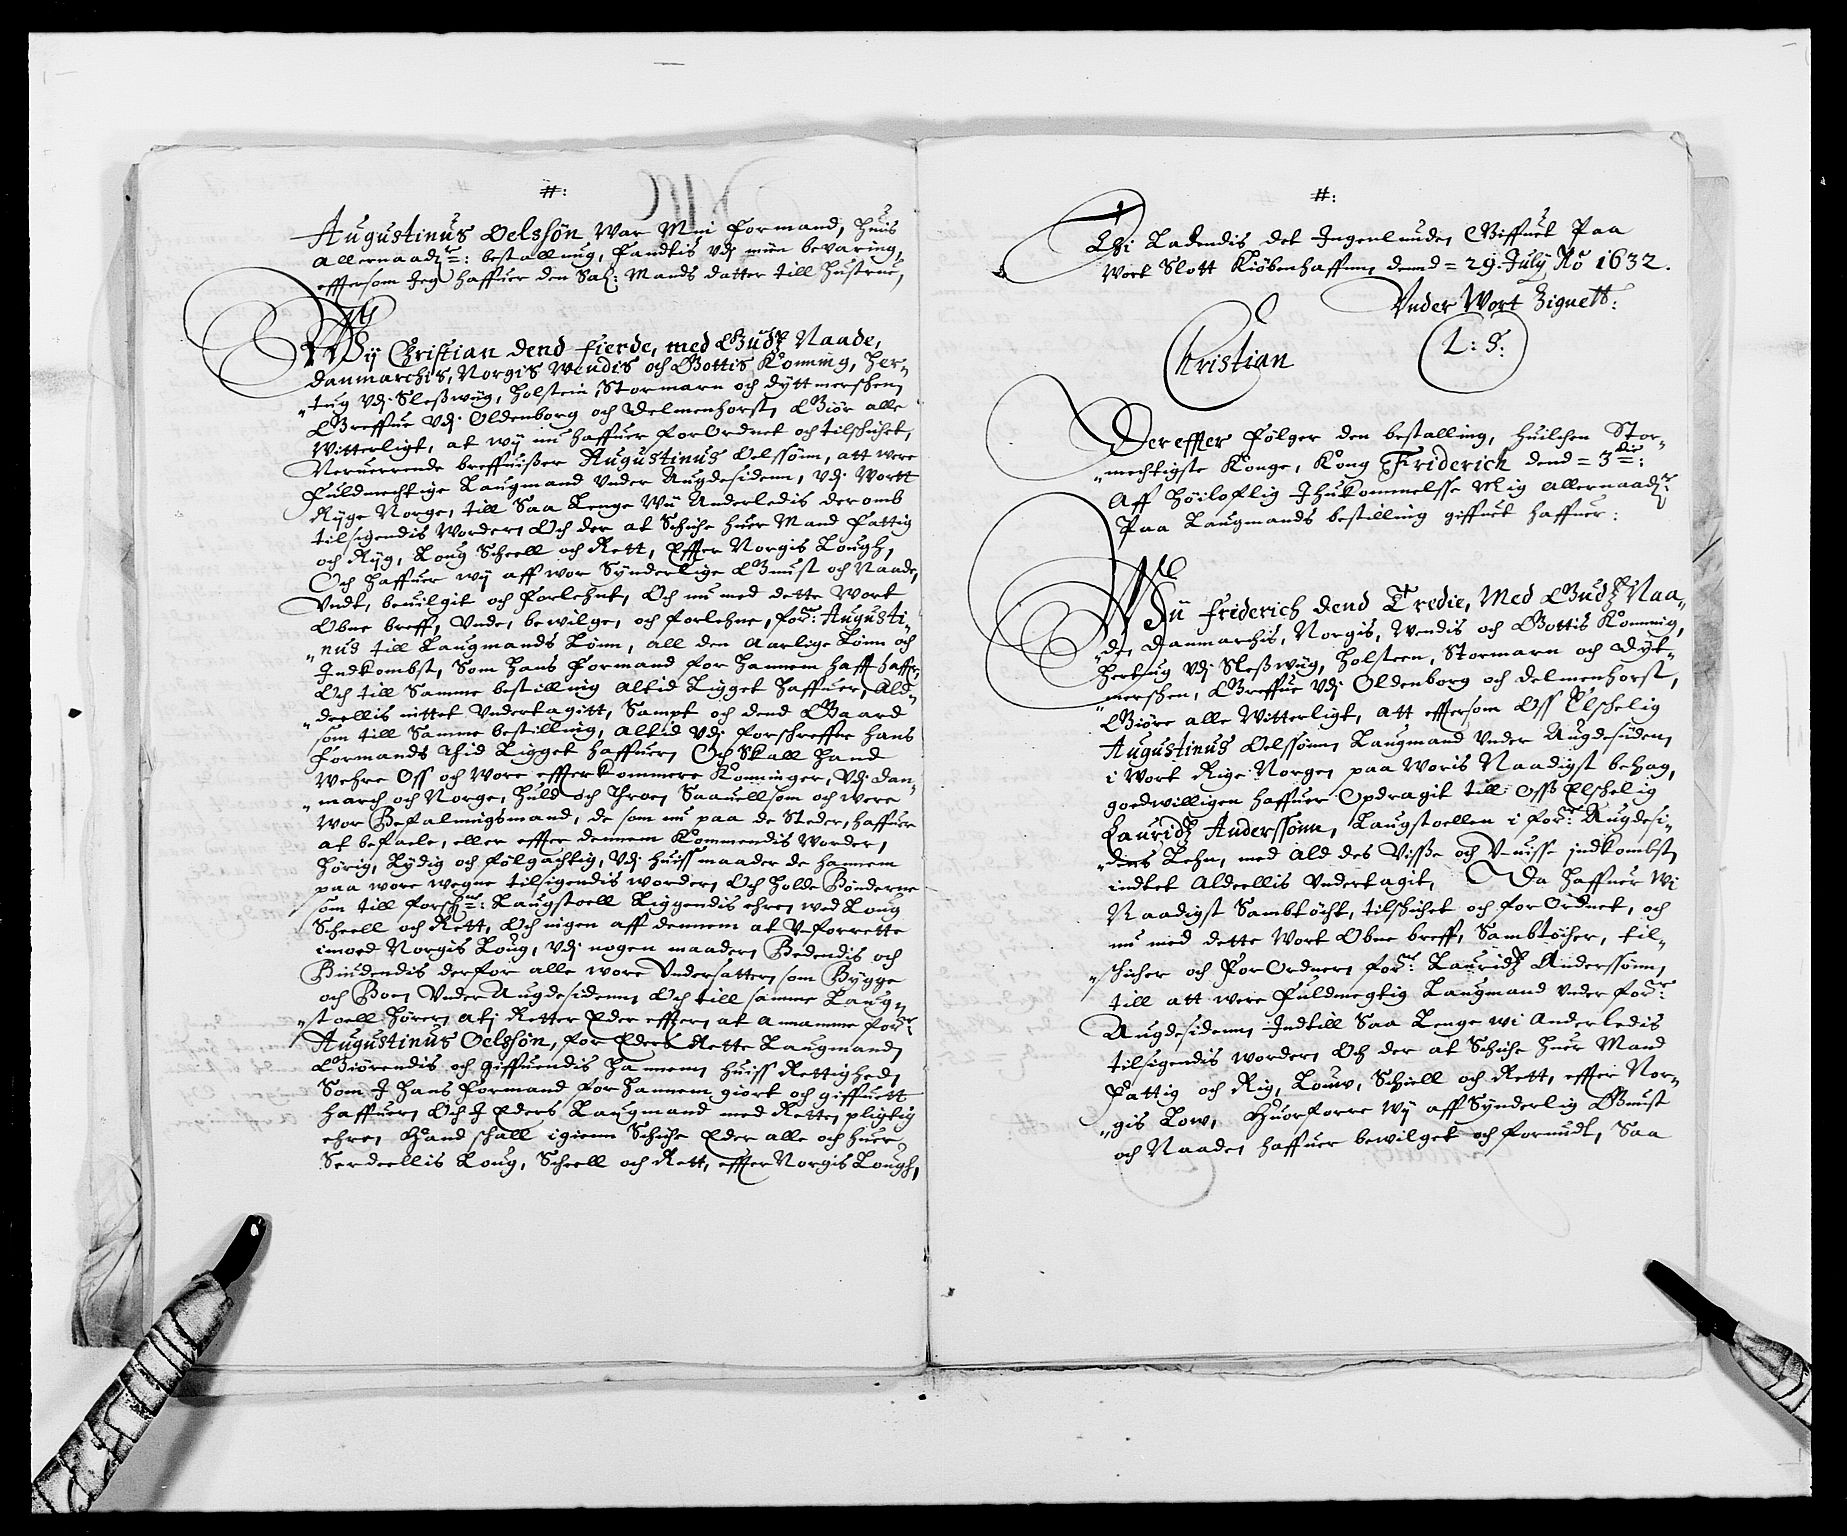 #:
Augustinus Oelssøn war Min formand, Huis
allernaadi=: bestallnug, fandtis vdj min bevaring,
effersom Jeg haffuer den Sal: Mands datter till Hustrue,
Wij Christian dend fierde, med Gudz Naade,
Danmarchis, Norgis Wendis och Gottis Konning, Her-
„tug vdj Sleßwiig, Holstein, Stormarn och Dyttmerschen,
Greffue vdj Oldenborg och Delmenhorst, Giør alle
Witterligt, at wij nu haffuer forOrdnet och tilschichet,
Neruerrende breffuißer Augustinus Oelssønn, att were
fuldmechtige Laugmand vnder Augdesidenn, vdj Wortt
Ryge Norge, till Saa Lenge Wii Anderledis deromb
tilsigendis Worder, Och der at Schiche huer Mand fattig
och Ryg, Loug Scheell och Rett, Effter Norgis Lough,
Och haffuer wij aff wor Synderlige Gunst och Naade,
Vndt, beuilgit och forlehnt, Och nu med dette Wort
Obne breff, Vnde, bewilge, och forlehne, for: Augusti-
„nus till Laugmands Lønn, all den Aarlige Lønn och
Indkombst, Som Hans formand for Hannem hafft haffr,
Och till Samme bestilling altid Ligget haffuer, Ald-
„deellis intet vndertagitt, Sampt och dend Gaard
som till Samme bestilling, altid vdj forschreffne Hans
formands thid Ligget haffuer, Och Skall Hand
Wehre Oss och Wore effterkommere Konninger, vdj Dan-
„march och Norge, Huld och Throe, Saauellsom och were
Wor Befalningsmand, de som nu paa de Steder, haffuer
at befaele, eller effter dennem Kommendis Worder,
Hørig, Lydig och følgachtig, vdj Huiss maader de Hannem
paa wore wegne tilsigendis worder, Och Holde Bønderne
som till forschne: Laugstoell Liggendis ehre, wed Loug
Scheell och Rett, Och ingen aff dennem at V-forrette
imoed Norgis Loug, vdj nogen maader, Bedendis och
Biudendis derfor alle wore Vndersatter, som Bygge
och Boe, Vnder Augdesidenn, Och till samme Laug-
„stoell Hører, atj Retter Eder effter, at Anamme for:
Augustinus Oelssøn, for Eders Rette Laugmand,
Giørendis och giffuendis Hannem, Huiss Rettighed,
Som I Hans formand for Hannem giort och giffuett
haffuer, Och I Eders Laugmand med Rette, pligtig
ehre, Hand schall igienn Schiche Eder alle och Huer
Serdeellis Loug, Scheell och Rett, effter Norgis Lough,
#:
Wi Ladendis det Ingenlunde, Giffuet Paa
Wort Slott Kiøbenhaffnn, dennd = 29. July Ao 1632.
Vnder Wort Zignett:
Christian
L: S:
Dereffter følger den bestalling, Huilchen Stor-
„mechtigste Konge, Kong Friderich dend = 3die:
Aff Høiloflig Ihukommelsse Mig allernaadr:
Paa Laugmands bestilling giffuet haffuer:
Wii friderich dend Tredie, Med Gudz Naa-
„de, Danmarchis, Norgis, Wendis och Gottis Konning,
Hertug vdj Sleßwiig, Holsteen, Stormarn och Dyt-
„merschen, Greffue vdj Oldenborg och Delmenhorst,
Giøre alle Witterligt, att efftersom Oss Elschelig
Augustinus Oelssønn, Laugmand vnder Augdesiden,
i Wort Rige Norge, paa Woris Naadigst behag,
goedwilligen haffuer Opdragit till Oss Elschelig
Lauridz Anderssønn, Laugstoellen i for: Augdesi-
„dens Lehn, med ald des Visße och V-uisse indkombst,
indtet Aldeellis vndertagit, Da haffuer Wi
Naadigst Sambtøcht, tilschichet och forOrdnet, och
nu med dette Wort Obne breff, Sambtøcher, til-
„schicher och forOrdner, for: Lauridz Anderssønn,
till att were fuldmegtig Laugmand vnder for:
Augdesidenn, Indtill Saa Lenge wi Anderledis
tilsigendis worder, Och der at Schiche Huer Mand
fattig och Rig, Louw, Schiell och Rett, effter Nor-
„gis Low, Huorforre Wij aff Synderlig Gunst
och Naade, haffuer bewilget och forundt, Saa